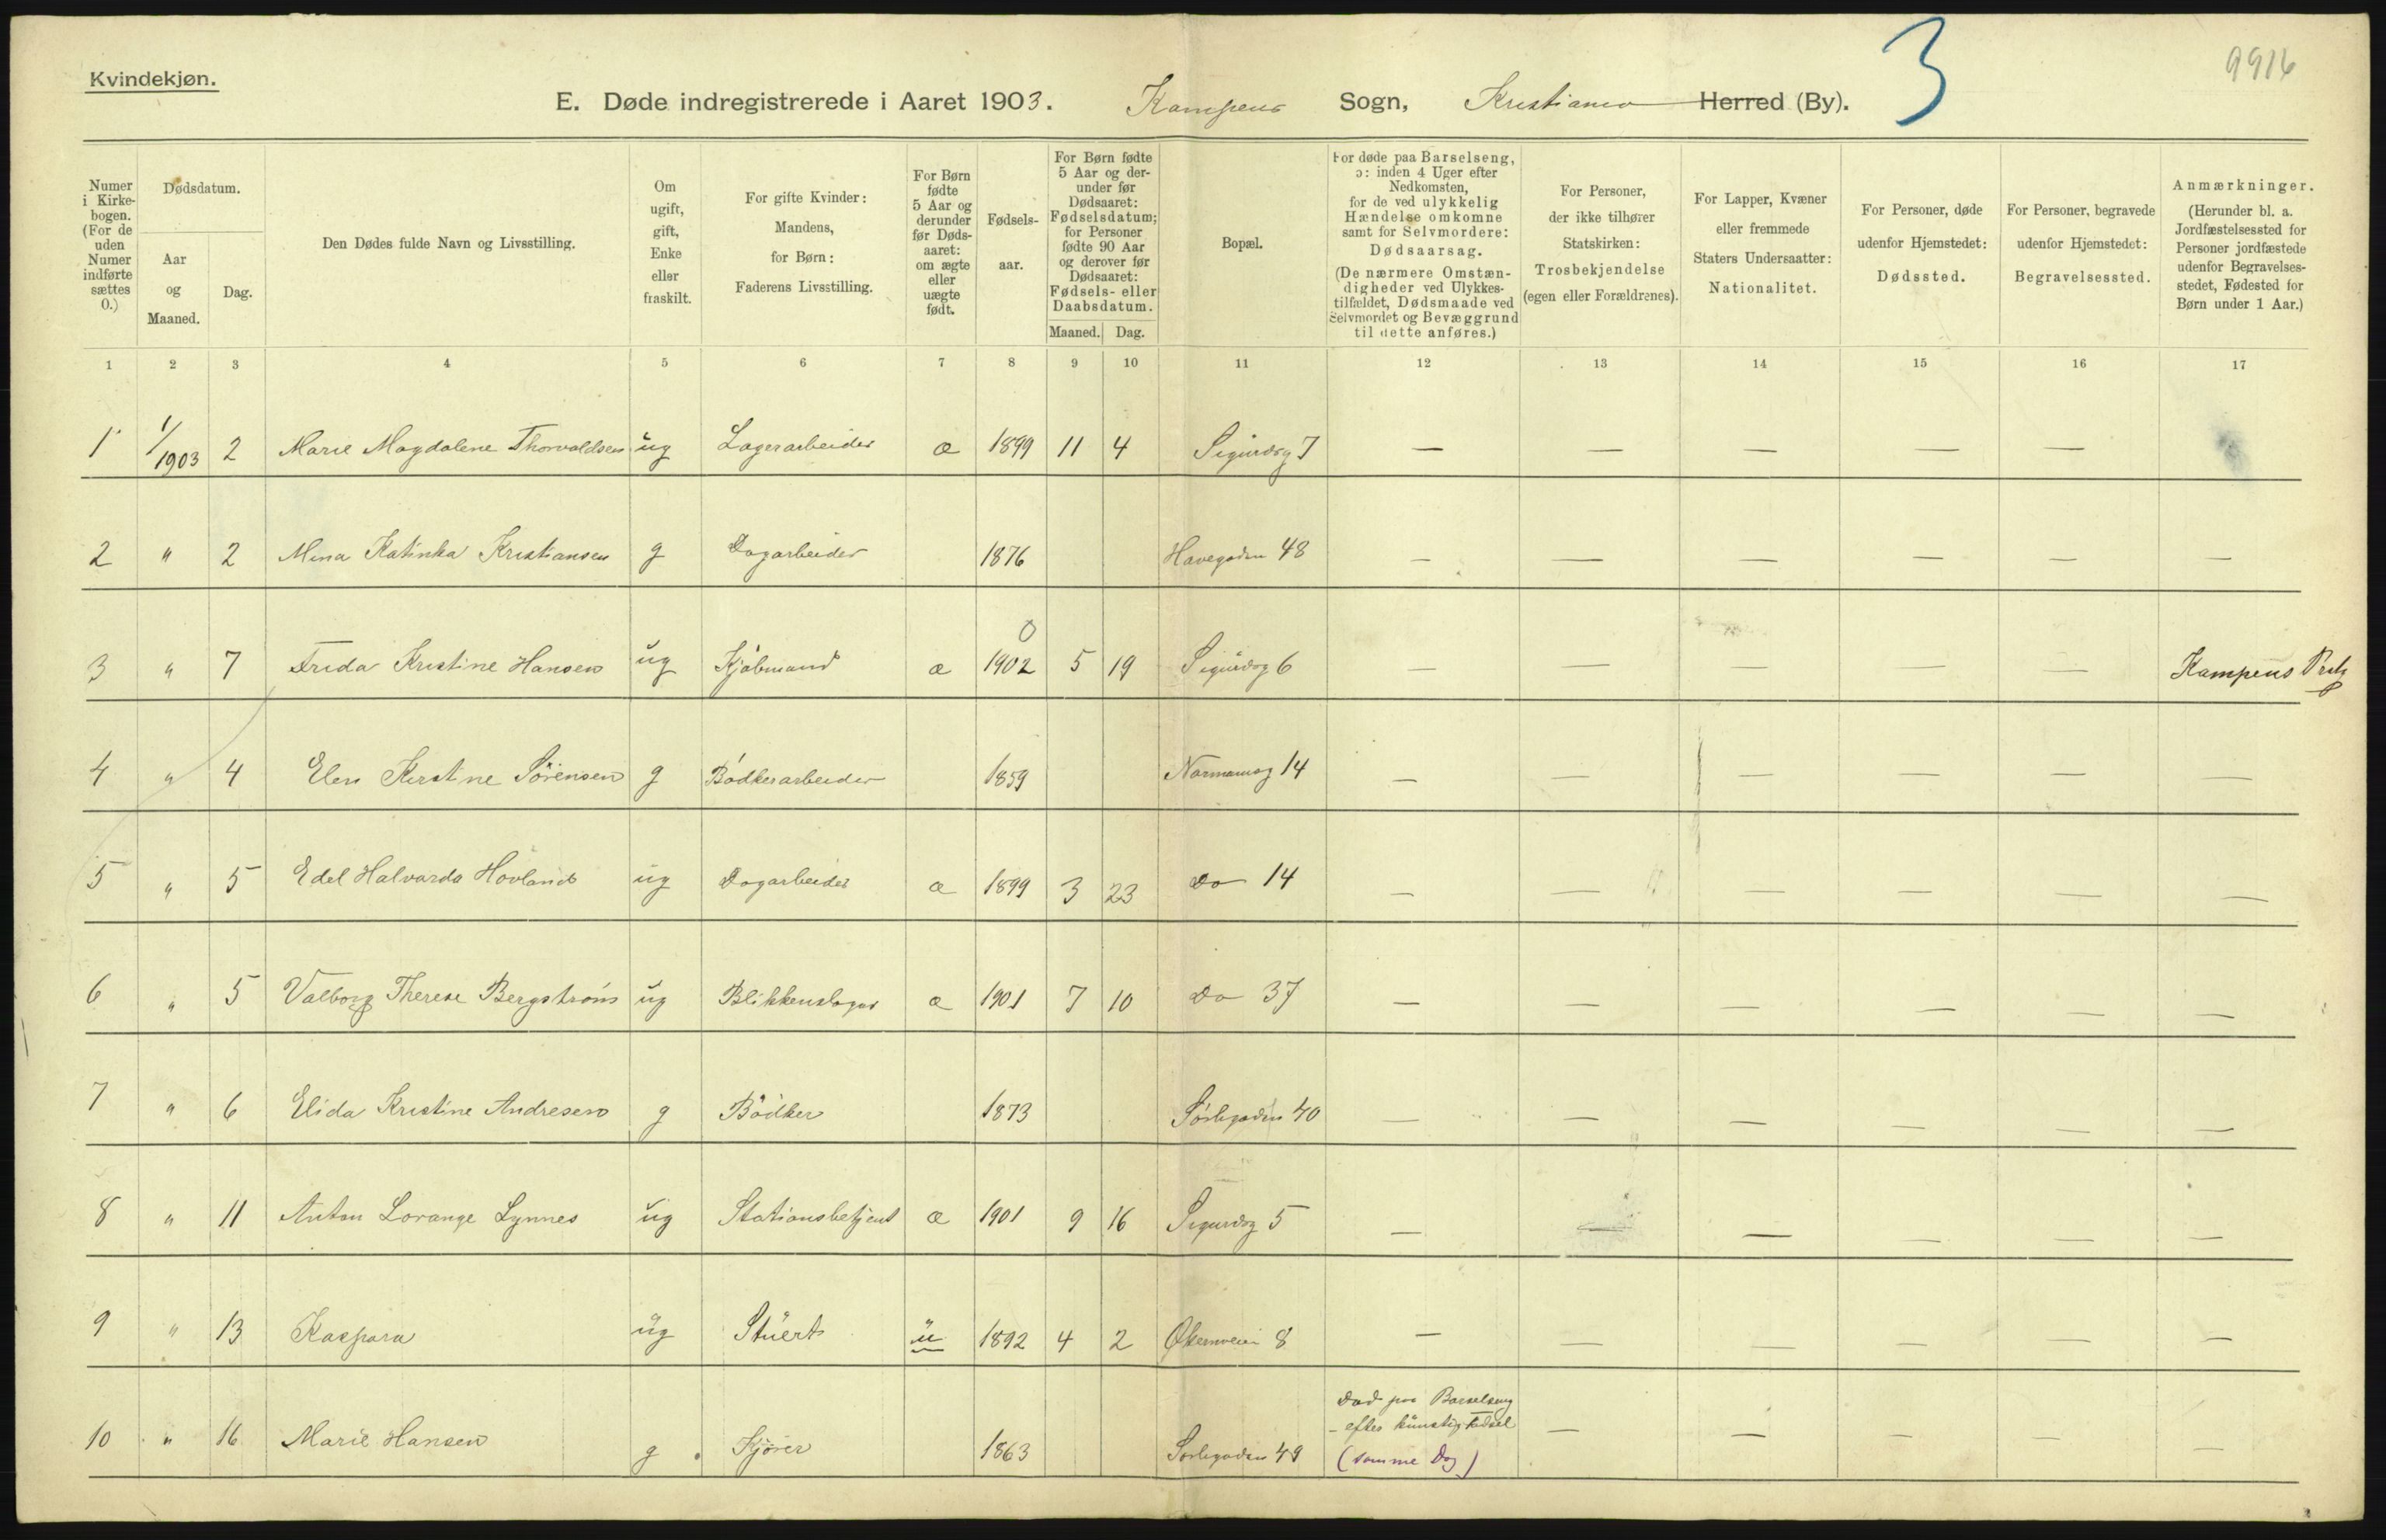 Kvindekjøn.
3
9916
E. Døde indregistrerede i Aaret 1903. Kampens Sogn, Kristiania Herred (By).
Numer i Kirkebogen. (For de uden Numer indførte sættes 0.)
Dødsdatum.
Aar og Maaned.
Dag.
Den Dødes fulde Navn og Livsstilling.
Om ugift, gift, Enke eller fraskilt.
For gifte Kvinder: Mandens, for Børn: Faderens Livsstilling.
For Børn fødte 5 Aar og derunder før Dødsaaret: om ægte eller uægte født.
Fødselsaar.
For Børn fødte 5 Aar og derunder før Dødsaaret: Fødselsdatum; for Personer fødte 90 Aar og derover før Dødsaaret: Fødsels- eller Daabsdatum.
Maaned. Dag.
Bopæl.
For døde paa Barselseng, ɔ: inden 4 Uger efter Nedkomsten, for de ved ulykkelig Hændelse omkomne samt for Selvmordere: Dødsaarsag. (De nærmere Omstændigheder ved Ulykkestilfældet, Dødsmaade ved Selvmordet og Bevæggrund til dette anføres.)
For Personer, der ikke tilhører Statskirken: Trosbekjendelse (egen eller Forældrenes).
For Lapper, Kvæner eller fremmede Staters Undersaatter: Nationalitet.
For Personer, døde udenfor Hjemstedet: Dødssted.
For Personer, begravede udenfor Hjemstedet: Begravelsessted.
Anmærkninger. (Herunder bl. a. Jordfæstelsessted for Personer jordfæstede udenfor Begravelsesstedet, Fødested for Børn under 1 Aar.)
1 2 3 4 5 6 7 8 9 10 11 12 13 14 15 16 17
1 1/1903 2 Marie Magdalene Thorvaldsen ug Lagerarbeider æ 1899 11 4 Sigurdsg 7 — — — — —
2 " 2 Mina Katinka Kristiansen g Dagarbeider 1876 Havegaden 48 — — — — — —
0
3 " 7 Frida Kristine Hansen ug Kjøbmand æ 1902 5 19 Sigurdsg 6 — — — — — Kampens
4 " 4 Elen Kirstine Sörensen g Bödkerarbeider 1859 Normannsg 14 — — — — — —
5 " 5 Edel Halvarda Hovland ug Dagarbeider æ 1899 3 23 Do 14 — — — — — —
6 " 5 Valborg Therese Bergström ug Blikkenslager æ 1901 7 10 Do 37 — — — — — —
7 " 6 Elida Kristine Andresen g Bödker 1873 Sörligaden 40 — — — — — —
8 " 11 Anton Lorange Lynnes ug Stationsbetjent æ 1901 9 16 Sigurdsg 5 — — — — — —
9 " 13 Kaspara ug Stuert u 1892 4 2 Økernveien 8 — — — — — —
10 " 16 Marie Hansen g Kjörer 1863 Sörligaden 49 Död paa Barselseng — — — — —
- efter kunstig födsel
(samme Dag)